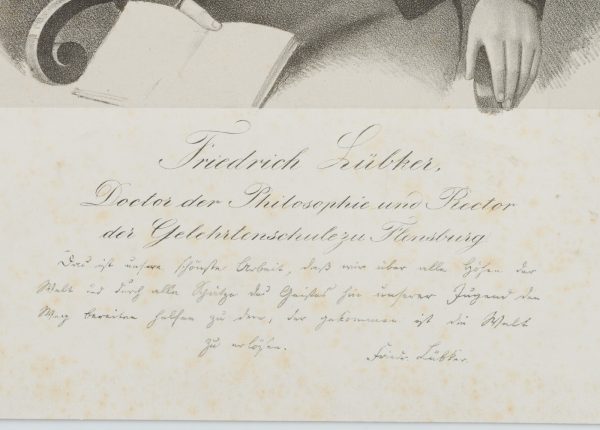 Friedrich Lübker,
Doctor der Philosophie und Rector
der Gelehrtenschule zu Flensburg
Das ist unsere schönste Arbeit, daß wir über alle Höhen der
Welt und durch alle Schätze des Geistes hin unserer Jugend den
Weg bereiten helfen zu dem, der gekommen ist die Welt
zu erlösen.
Friedr. Lübker.